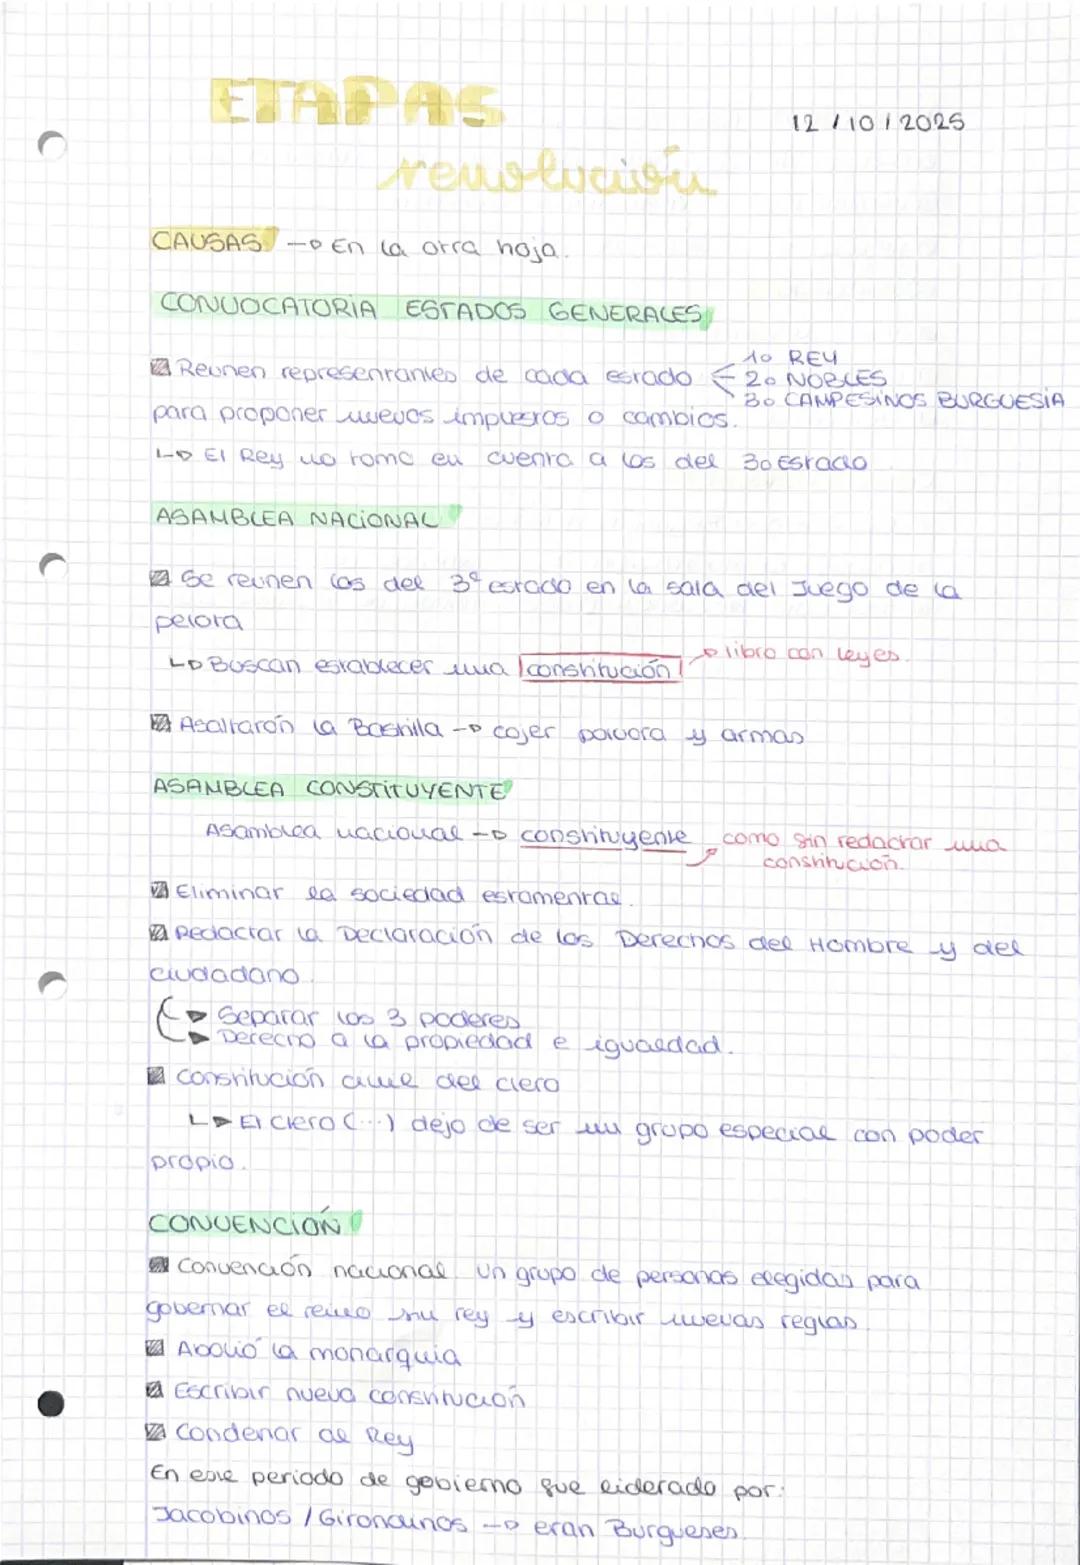 ETAPAS
12/10/2025
revolución
CAUSAS → En la otra hoja.
CONVOCATORIA ESTADOS GENERALES
1o REY
Reunen representantes de cada estado 2o NOBLES
3o CAMPESINOS BURGUESIA
para proponer nuevos impuestos o cambios.
↳ El Rey no tomo en cuenta a los del 3o Estado
ASAMBLEA NACIONAL
Se reunen los del 3º estado en la sala del Juego de la
pelota
↳ Buscan establecer una constitución → libro con leyes.
Asaltarón la Bastilla → cojer polvora y armas
ASAMBLEA CONSTITUYENTE
Asamblea nacional → constituyente como sin redactar una
constitución.
Eliminar la sociedad estamental.
Redactar la Declaración de los Derechos del Hombre y del
ciudadano.
Separar los 3 poderes
Derecho a la propiedad e igualdad.
Constitución civil del clero
↳ El clero (...) dejo de ser un grupo especial con poder
propio.
CONVENCIÓN
Convención nacional un grupo de personas elegidas para
gobernar el reino sin rey y escribir nuevas reglas.
Abolió la monarquia
Escribir nueva constitución
Condenar al Rey
En este periodo de gobierno fue liderado por:
Jacobinos / Girondinos → eran Burgueses.